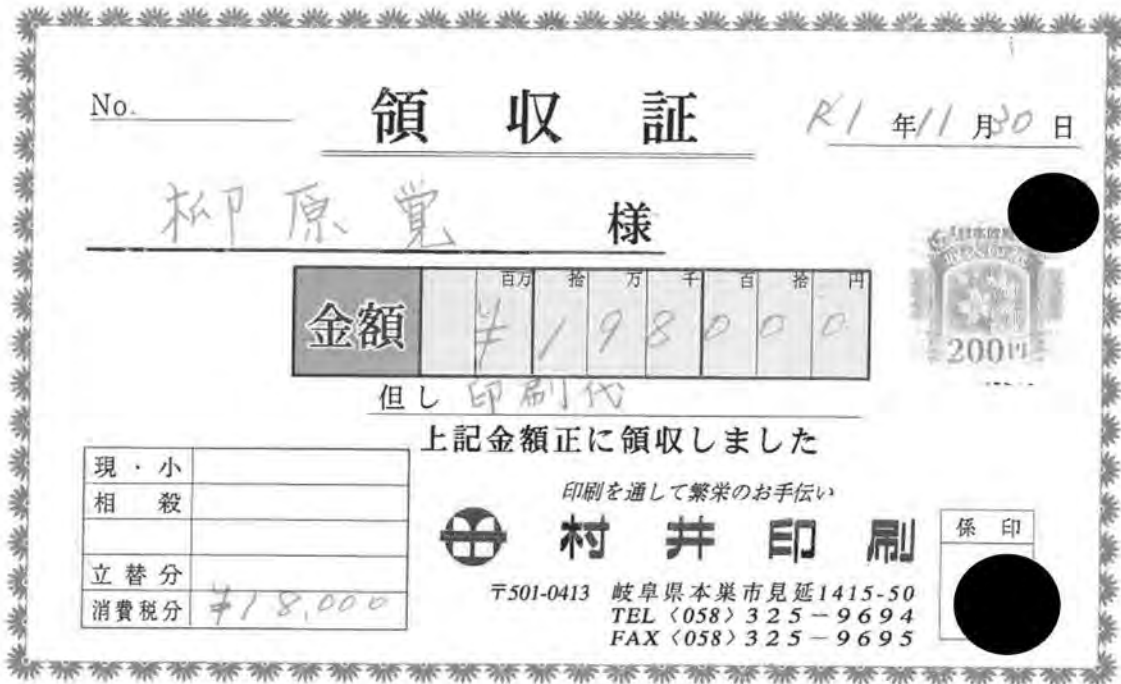 No.
領収証
R1年11月30日
柳原覚 様
百万 拾 万 千 百 拾 円
金額 ¥198000
但し 印刷代
上記金額正に領収しました
現・小
相殺
立替分
消費税分 ¥18,000
印刷を通して繁栄のお手伝い
村井印刷
〒501-0413 岐阜県本巣市見延1415-50
TEL〈058〉325-9694
FAX〈058〉325-9695
係印
200円